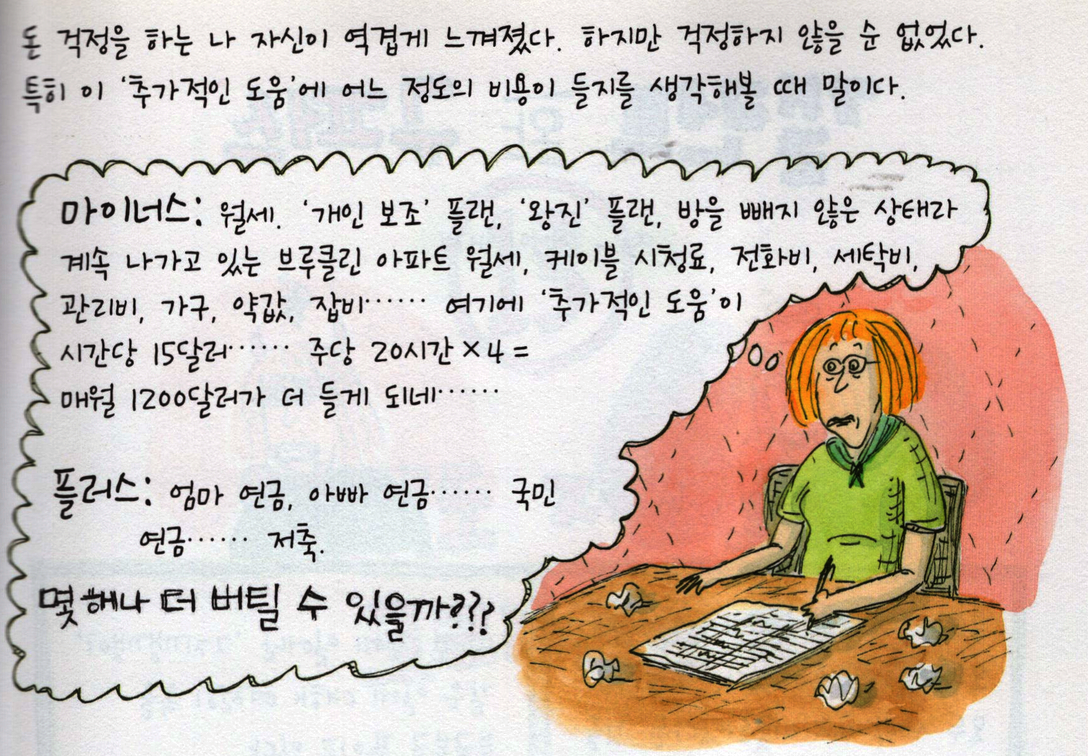 돈 걱정을 하는 나 자신이 역겹게 느껴졌다. 하지만 걱정하지 않을 순 없었다.
특히 이 '추가적인 도움'에 어느 정도의 비용이 들지를 생각해볼 때 말이다.
마이너스: 월세. '개인 보조' 플랜, '왕진' 플랜, 방을 빼지 않은 상태라
계속 나가고 있는 브루클린 아파트 월세, 케이블 시청료, 전화비, 세탁비,
관리비, 가구, 약값, 잡비…… 여기에 '추가적인 도움'이
시간당 15달러…… 주당 20시간×4=
매월 1200달러가 더 들게 되네……
플러스: 엄마 연금, 아빠 연금…… 국민
연금…… 저축.
몇 해나 더 버틸 수 있을까???